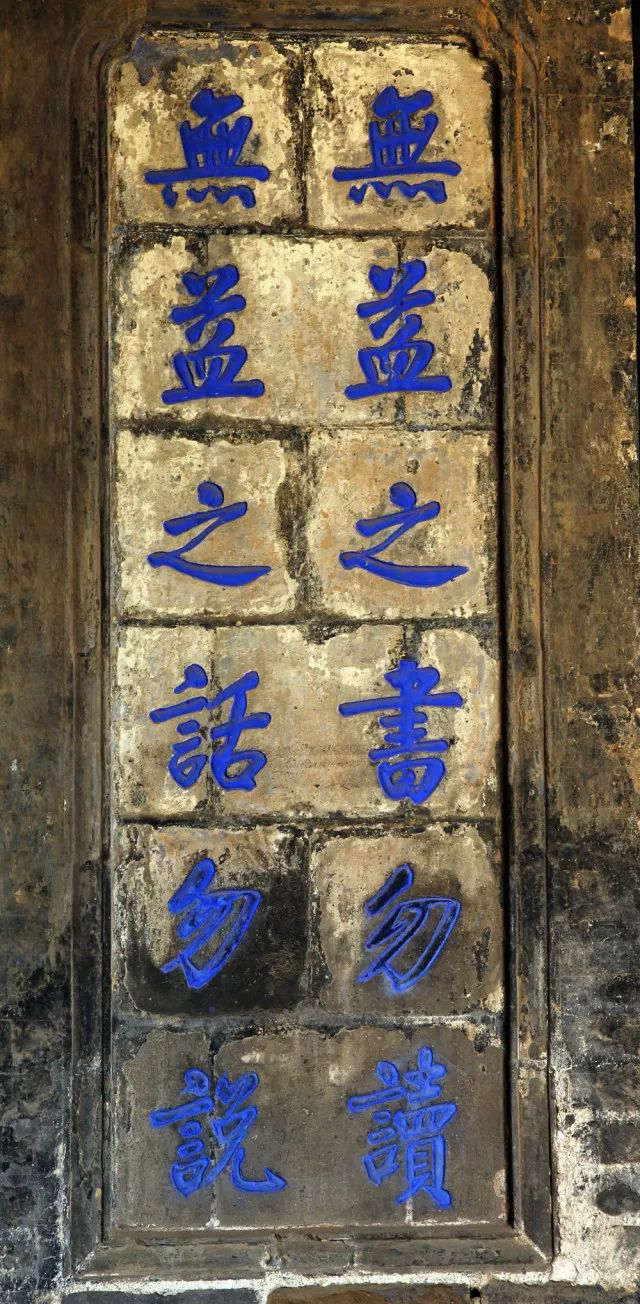 無益之書勿讀
無益之話勿說